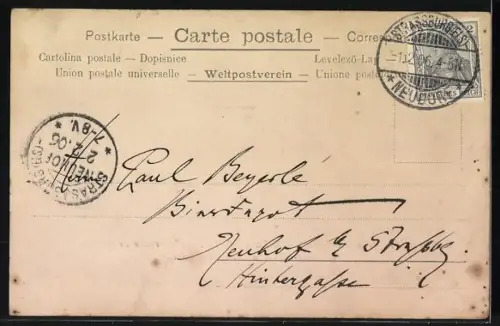 Postkarte — Carte postale — Corres
Cartolina postale — Dopisnice Levelező-Lap
Union postale universelle — Weltpostverein — Unione posta
STRASSBURG (ELS.) 2
1.12.06. 4-5N.
* NEUDORF *
STRASSBURG (ELS.) -NEUHOF
2.12.06
7-8V.
Herrn Paul Beyerlé
Bierdepot
Neuhof b/ Strassbg
Hintergasse